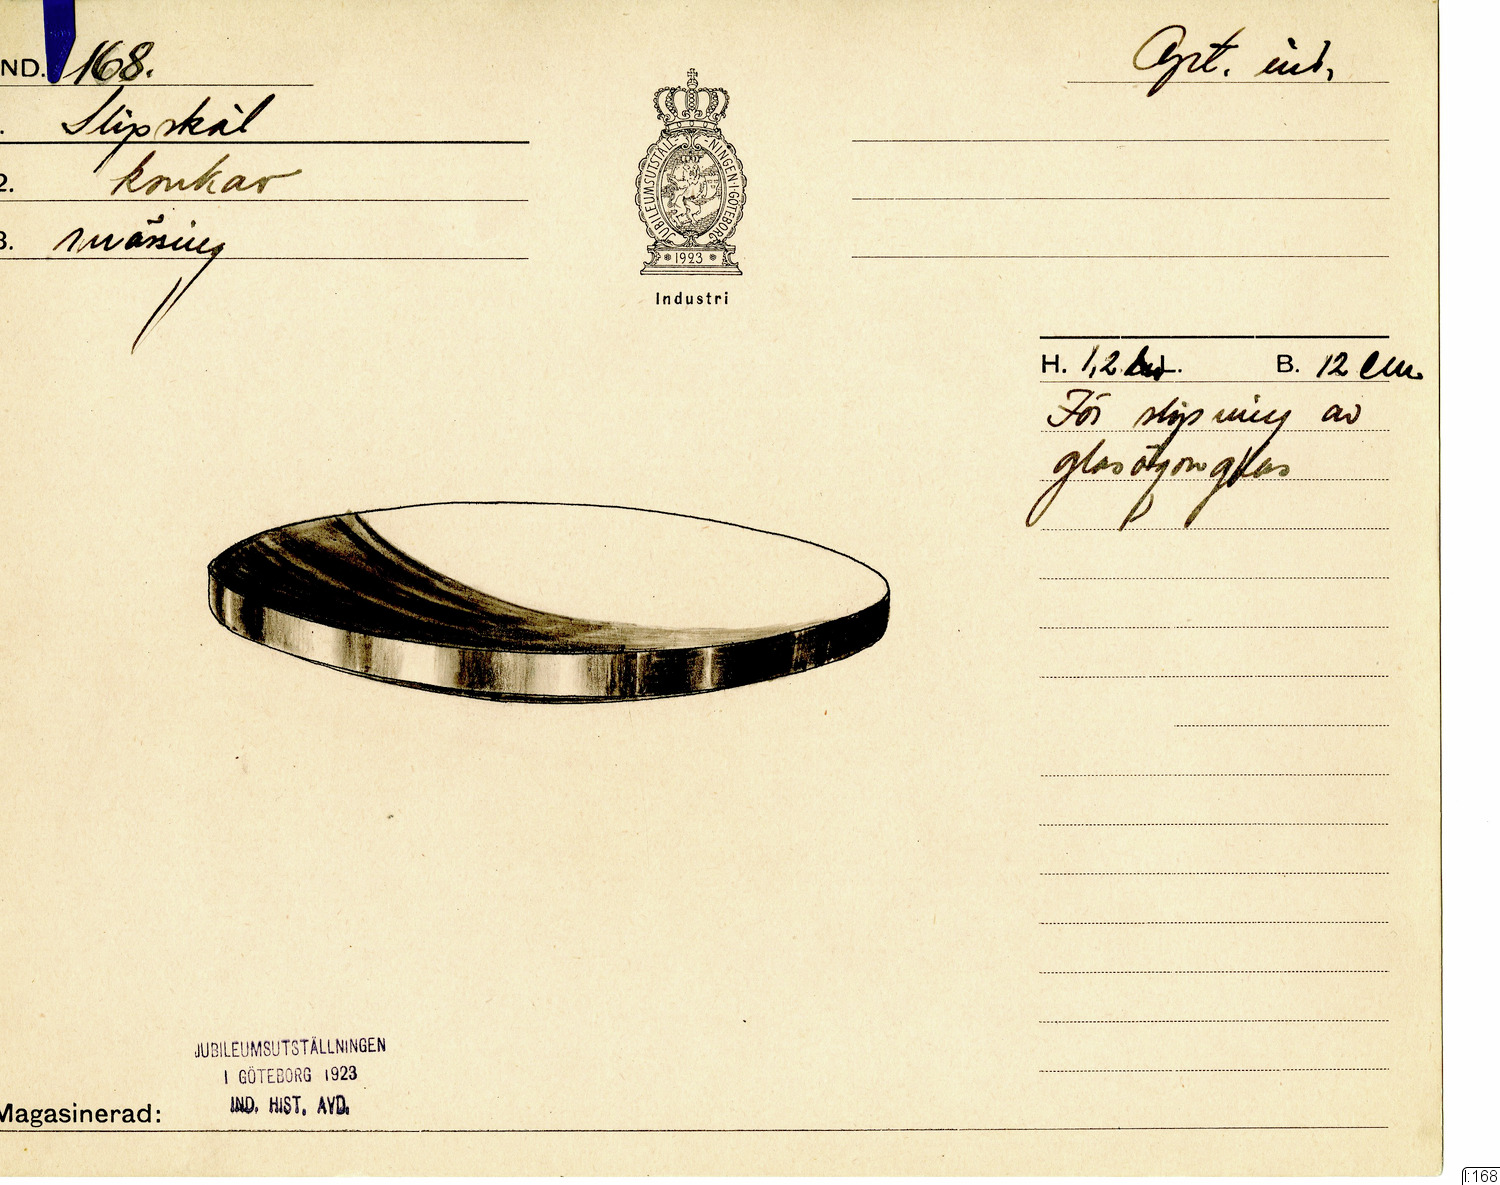 IND. 168.
Opt. ind.
1. Slipskål
2. konkav
3. mässing
JUBILEUMSUTSTÄLL-NINGEN·I·GÖTEBORG
1923
Industri
H. 1,2 cm L. B. 12 cm.
För slipning av
glasögonglas
JUBILEUMSUTSTÄLLNINGEN
I GÖTEBORG 1923
IND. HIST. AVD.
Magasinerad:
I:168